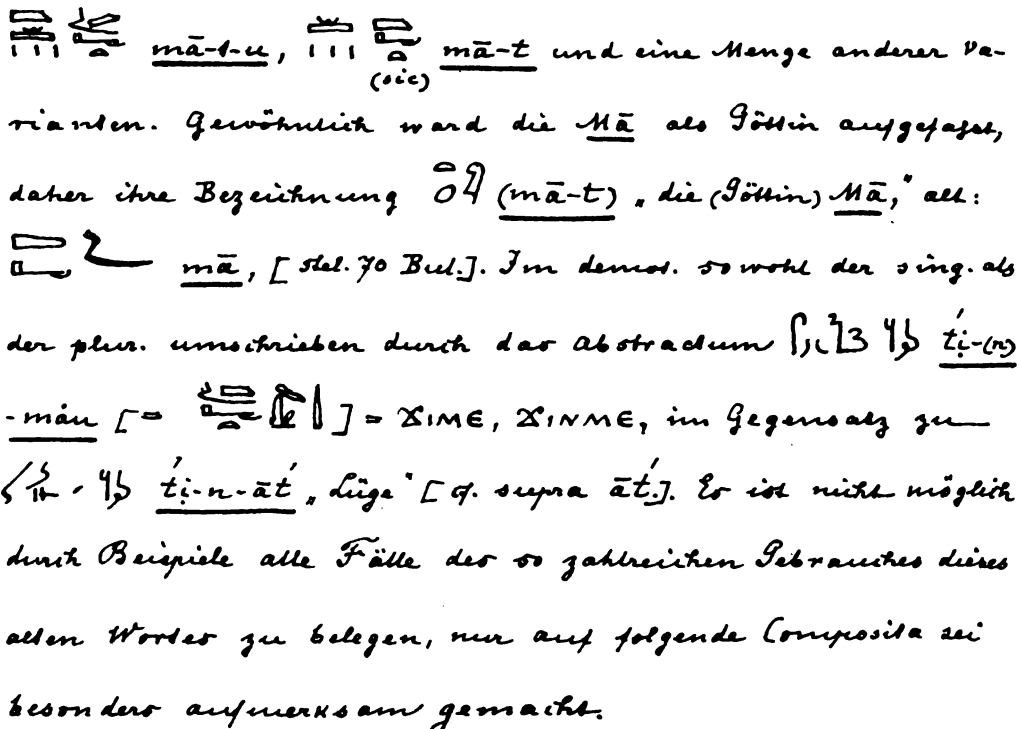 mā-t-u, mā-t und eine Menge anderer Va-
(sic)
rianten. Gewöhnlich ward die Mā als Göttin aufgefasst,
daher ihre Bezeichnung (mā-t) „die (Göttin) Mā,“ alt:
mā, [stel. 70 Bul.]. Im demot. sowohl der sing. als
der plur. umschrieben durch das Abstractum t́i̤-(n)
-māu [= ] = ϪΙΜΕ, ϪΙΝΜΕ, im Gegensatz zu
t́i̤-n-āt́ „Lüge“ [cf. supra āt́.]. Es ist nicht möglich
durch Beispiele alle Fälle des so zahlreichen Gebrauches dieses
alten Wortes zu belegen, nur auf folgende Composita sei
besonders aufmerksam gemacht.